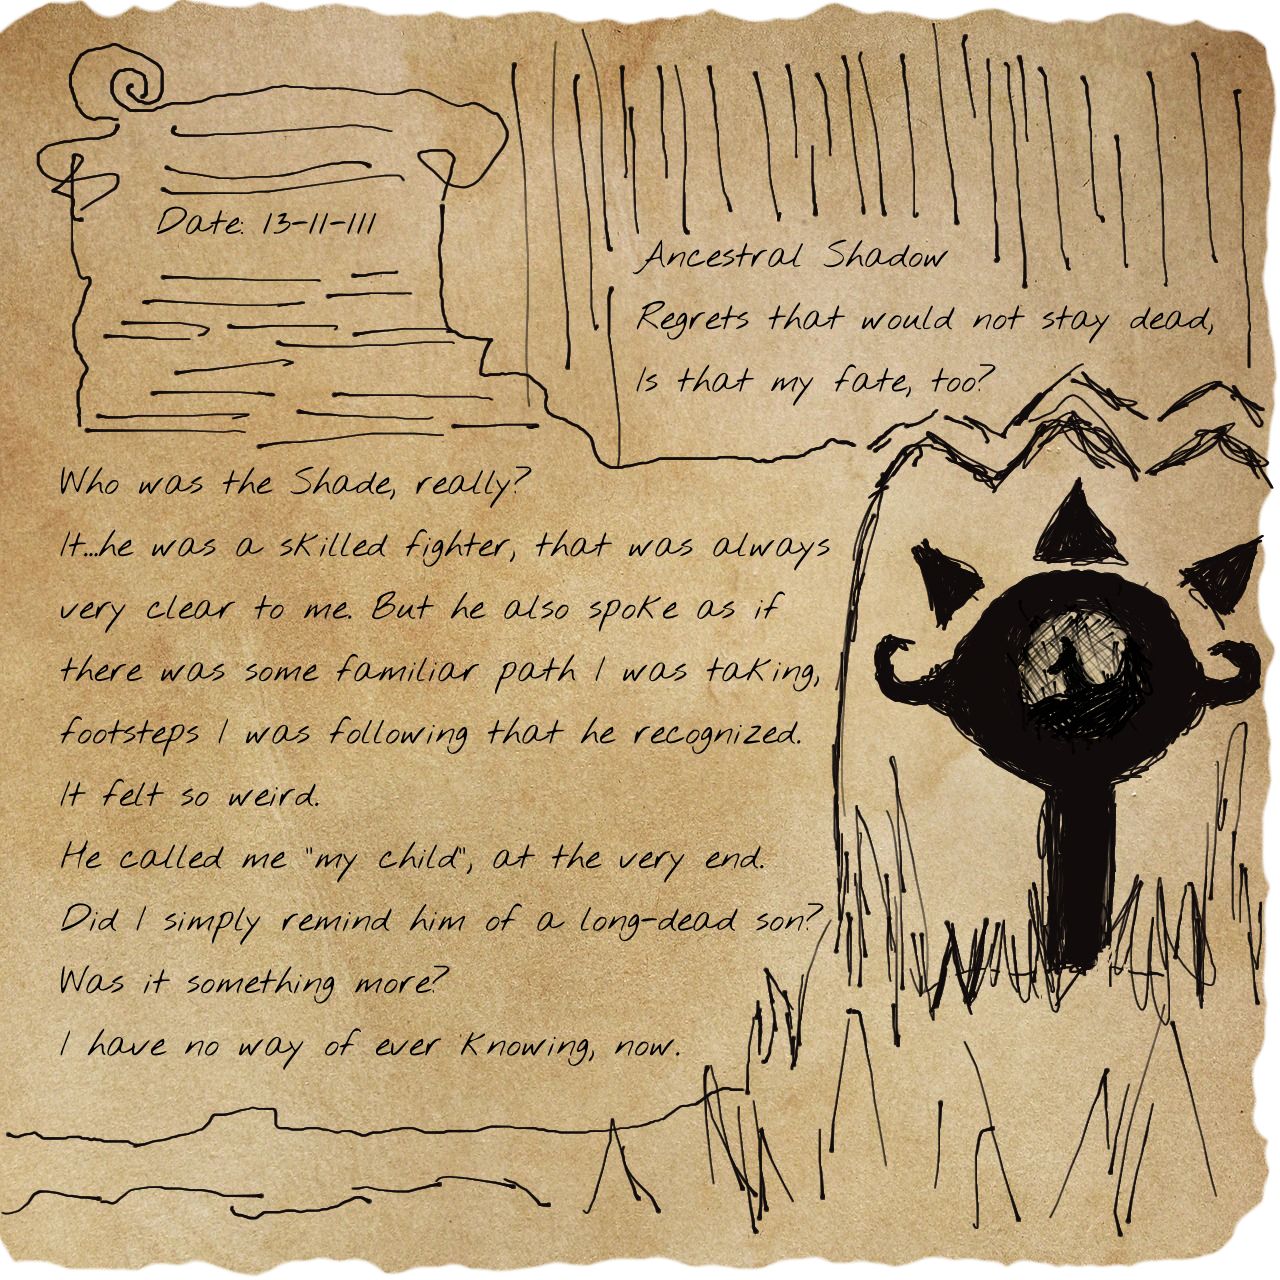 Date: 13-11-111
Ancestral Shadow
Regrets that would not stay dead,
Is that my fate, too?
Who was the Shade, really?
It...he was a skilled fighter, that was always
very clear to me. But he also spoke as if
there was some familiar path I was taking,
footsteps I was following that he recognized.
It felt so weird.
He called me "my child", at the very end.
Did I simply remind him of a long-dead son?
Was it something more?
I have no way of ever knowing, now.